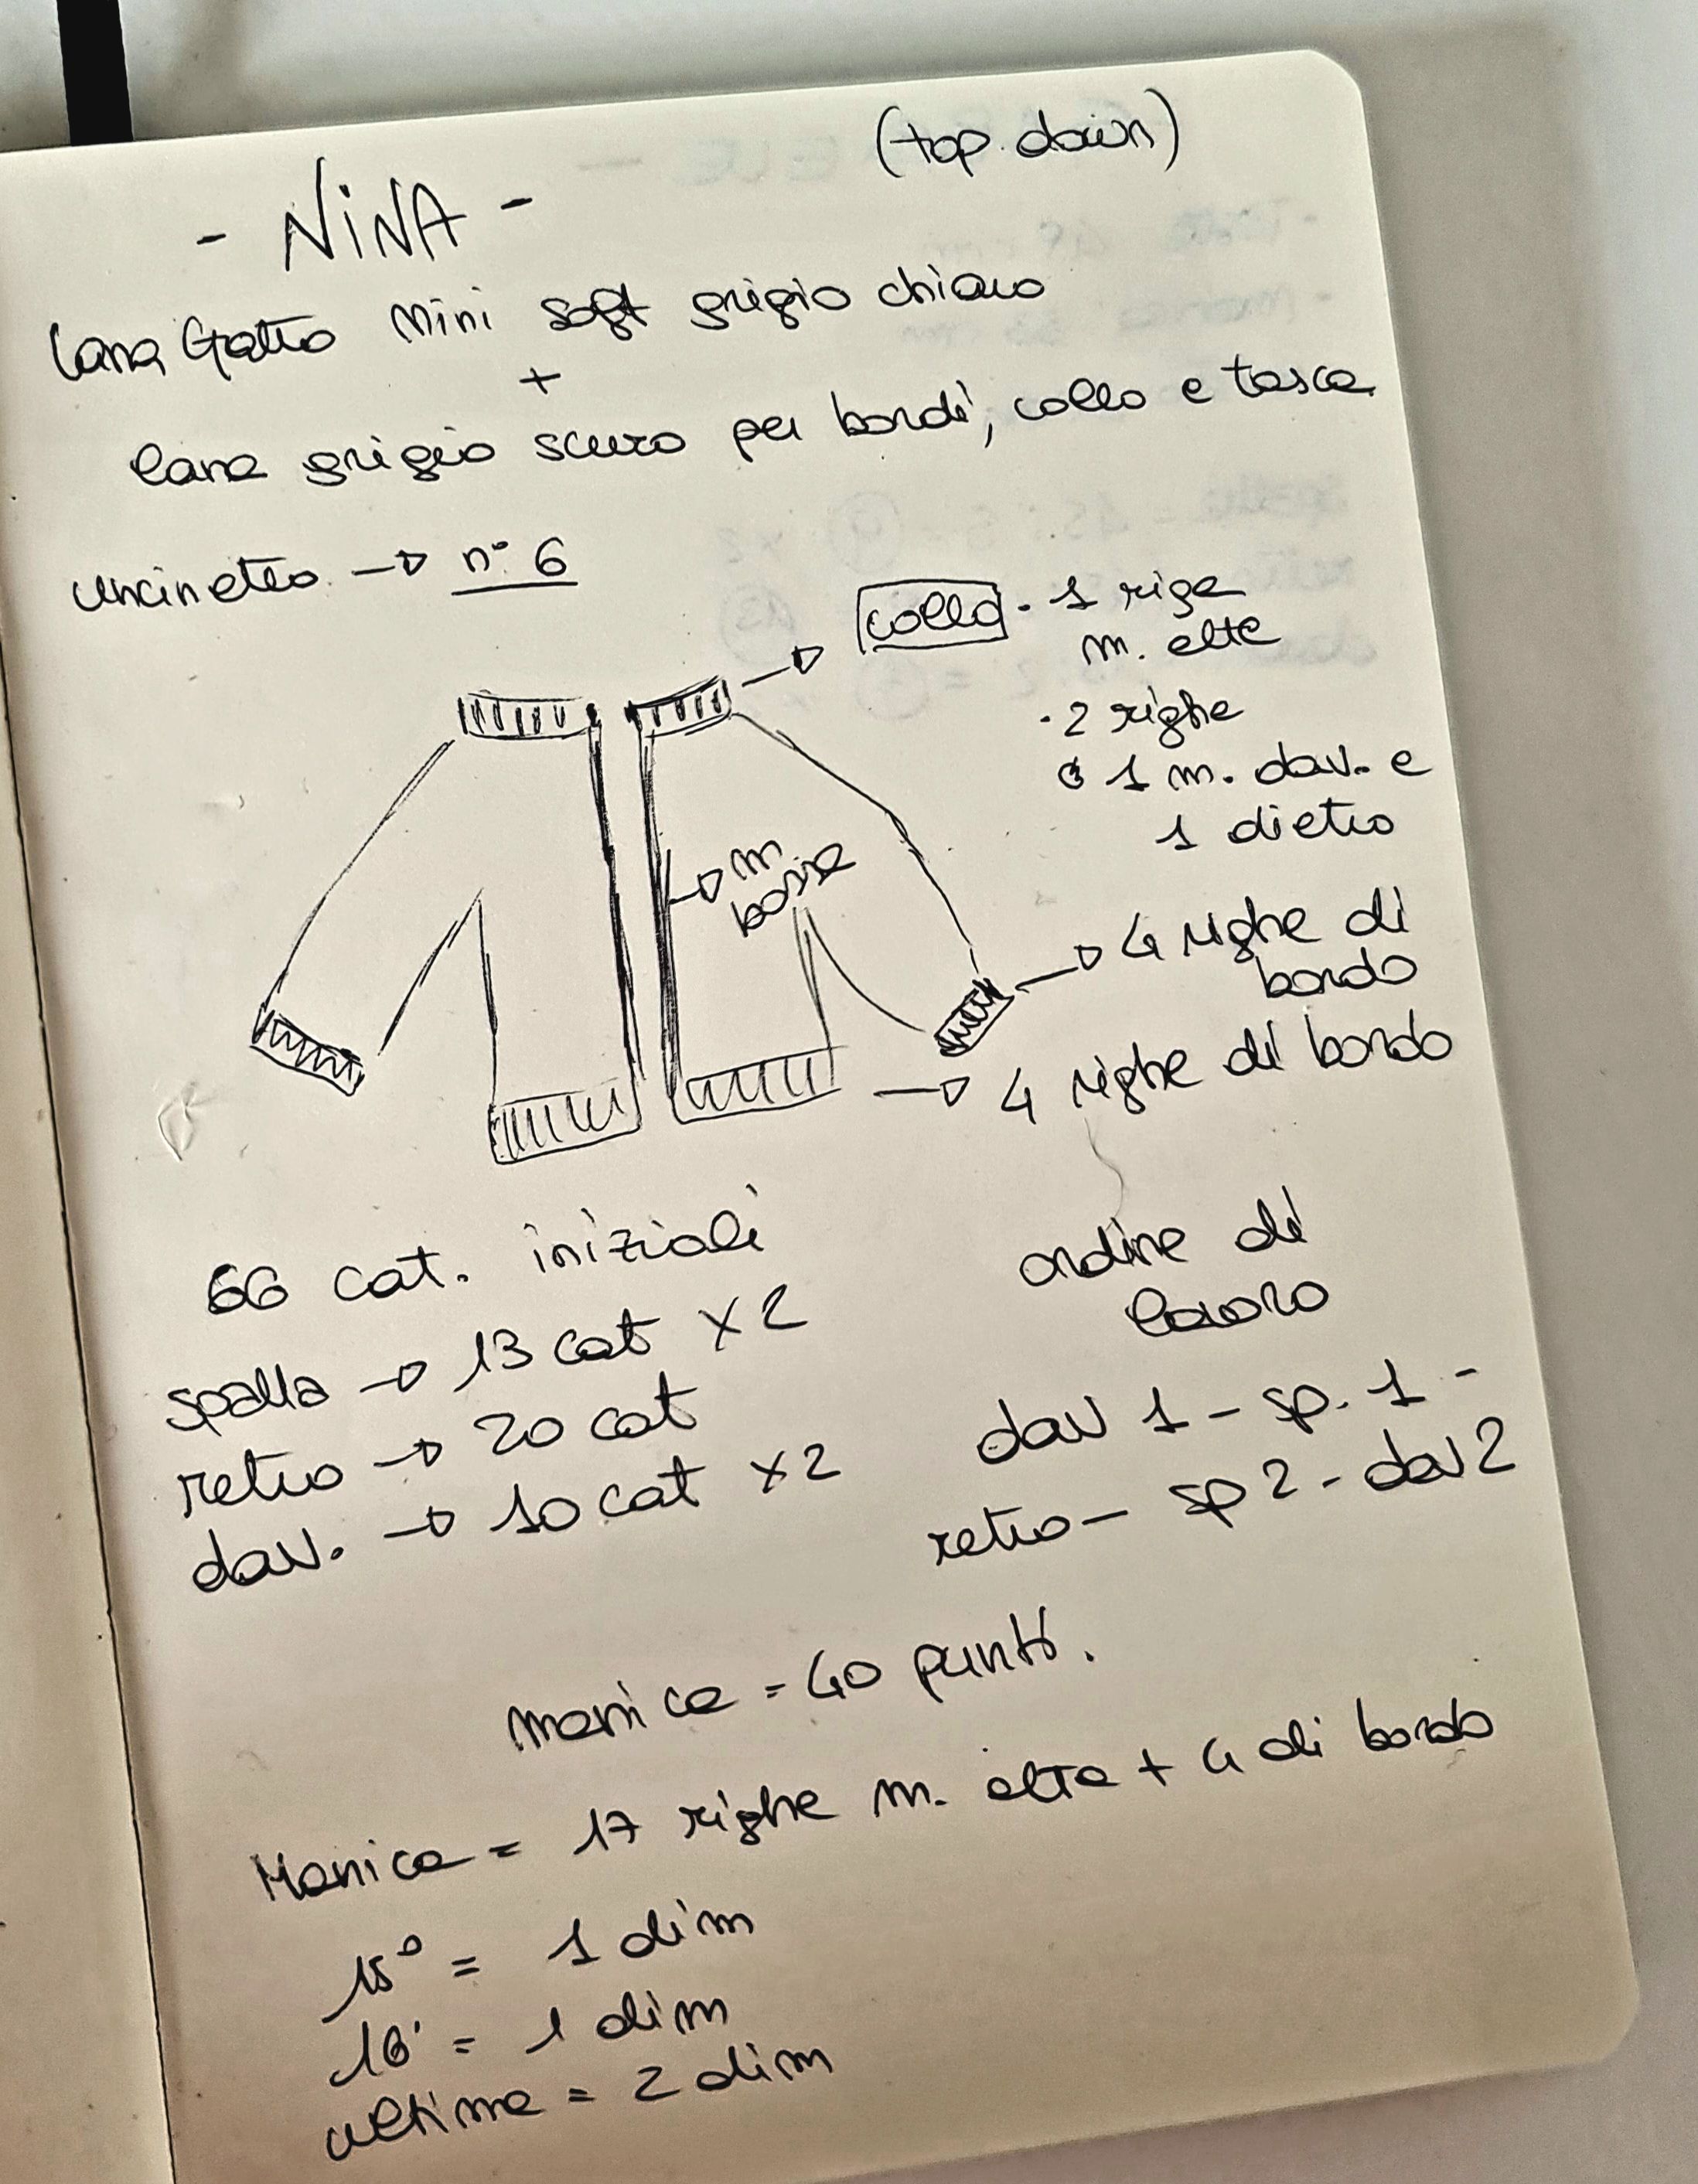 (top.down)
- NiNA -
Lana Gatto Mini soft grigio chiaro
+
lana grigio scuro per bordi, collo e tasca
uncinetto → n° 6
collo · 1 riga
m. alta
· 2 righe
1 m. dav. e
1 dietro
→ m
bassa
→ 4 righe di
bordo
→ 4 righe di bordo
66 cat. iniziali
spalla → 13 cat x2
retro → 20 cat
dav. → 10 cat x2
ordine di
lavoro
dav 1 - sp. 1 -
retro - sp 2 - dav 2
manica = 40 punti.
Manica = 17 righe m. alta + 4 di bordo
15° = 1 dim
16° = 1 dim
ultima = 2 dim